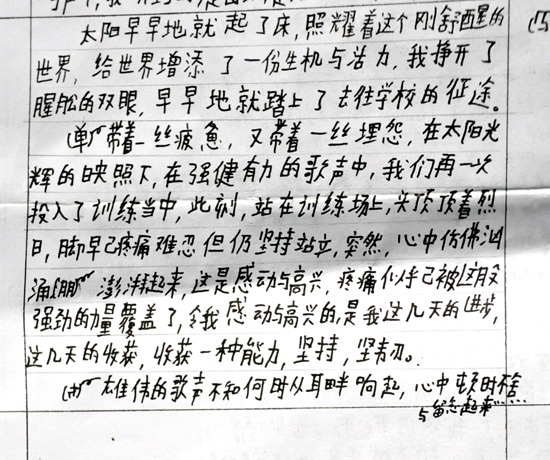 太阳早早地就起了床，照耀着这个刚舒醒的
世界，给世界增添了一份生机与活力，我挣开了
腥松的双眼，早早地就踏上了去往学校的征途。
带着一丝疲惫，又带着一丝埋怨，在太阳光
辉的映照下，在强健有力的歌声中，我们再一次
投入了训练当中，此刻，站在训练场上，头顶顶着烈
日，脚早已疼痛难忍但仍坚持站立，突然，心中仿佛汹
涌 澎湃起来，这是感动与高兴，疼痛似乎已被这股
强劲的力量覆盖了，令我感动与高兴的，是我这几天的进步，
这几天的收获，收获一种能力，坚持，坚韧。
雄伟的歌声不知何时从耳畔响起，心中顿时不舍
与留恋起来